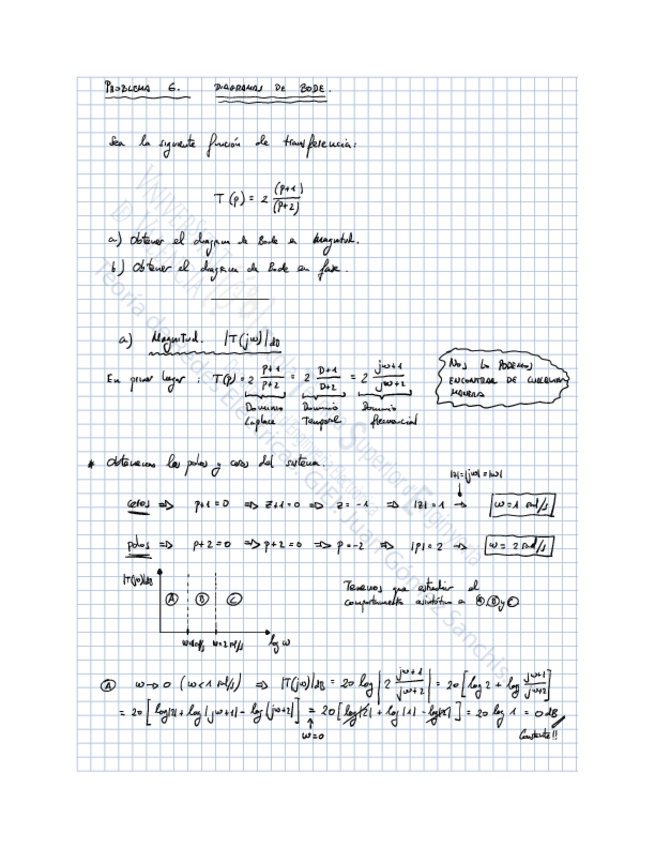 PROBLEMA 6. DIAGRAMAS DE BODE.
Sea la siguiente función de transferencia:
T(p) = 2 (p+1)/(p+2)
a) Obtener el diagrama de Bode en Magnitud.
b) Obtener el diagrama de Bode en fase.
a) Magnitud. |T(jω)|dB
En primer lugar: T(p) = 2 (p+1)/(p+2) = 2 (D+1)/(D+2) = 2 (jω+1)/(jω+2)
Dominio Laplace
Dominio Temporal
Dominio frecuencial
NOS LO PODEMOS
ENCONTRAR DE CUALQUIER
MANERA
* Obtenemos los polos y ceros del sistema.
|z| = |jω| = |ω|
ceros => p+1=0 => z+1=0 => z=-1 => |z|=1 -> ω=1 rad/s
polos => p+2=0 => p+2=0 => p=-2 => |p|=2 -> ω=2 rad/s
|T(jω)|dB
A B C
ω=1 rad/s ω=2 rad/s log ω
Tenemos que estudiar el
comportamiento asintótico a A, B y C
A ω->0 (ω<1 rad/s) => |T(jω)|dB = 20 log |2 (jω+1)/(jω+2)| = 20 [log 2 + log (jω+1)/(jω+2)]
= 20 [log|2| + log|jω+1| - log|jω+2|] = 20 [log|2| + log|1| - log|2|] = 20 log 1 = 0 dB
ω=0
Constante!!
UNIVERSITAT
Teoría de Redes Eléctricas
GIEI
Juan Gómez Sanchis